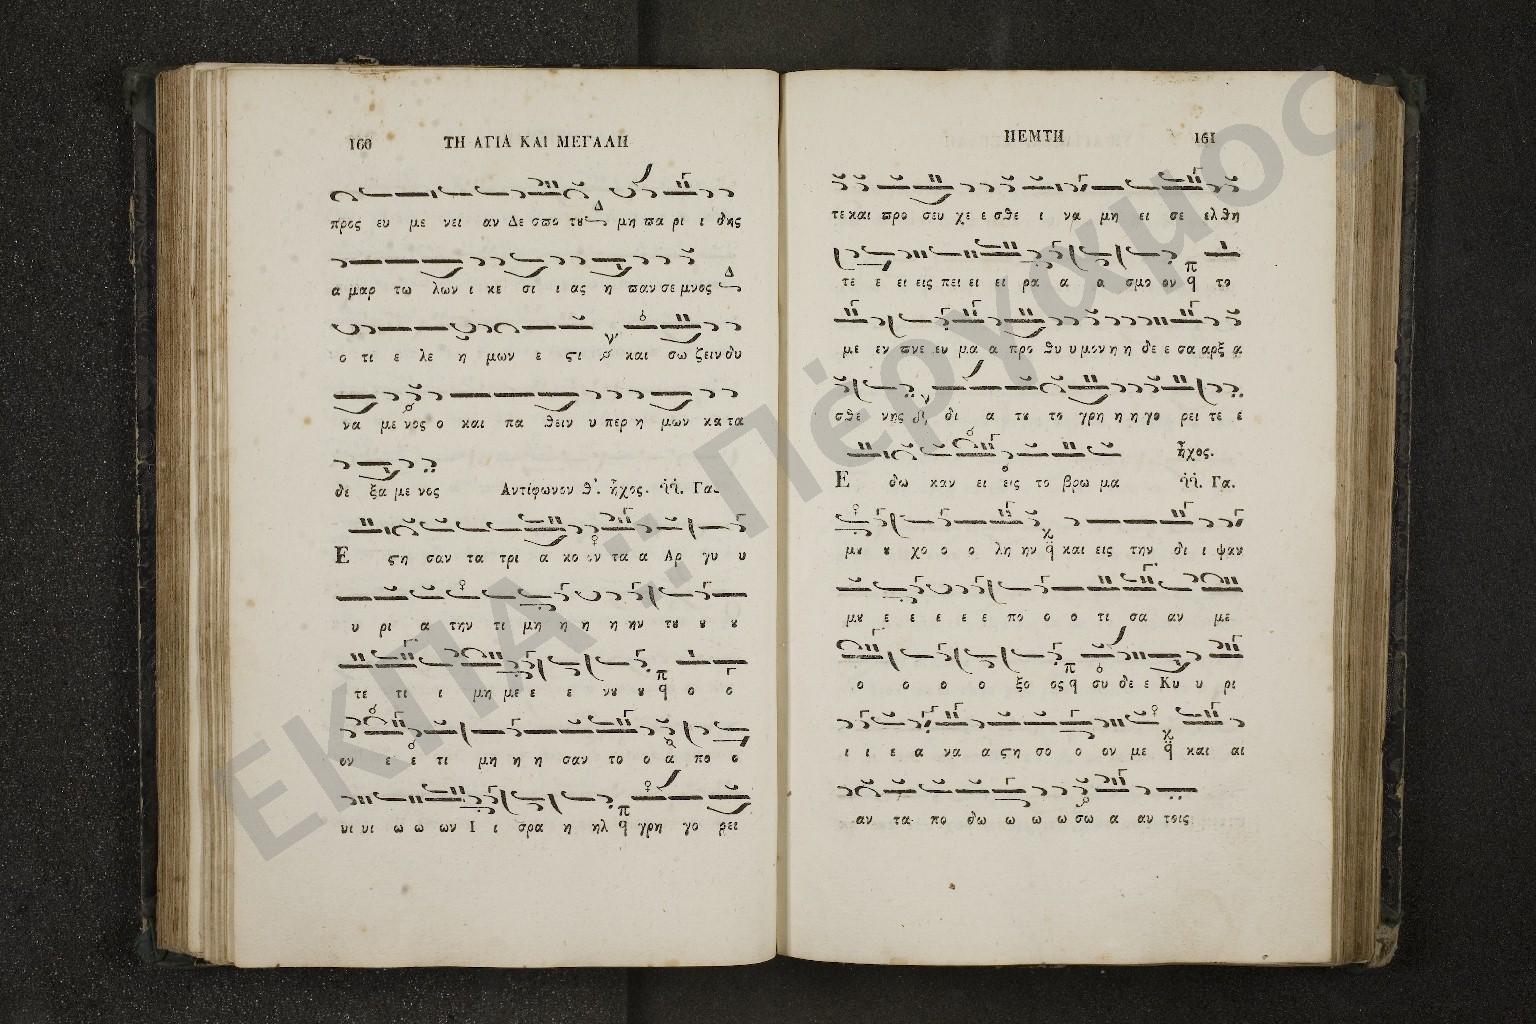 160 ΤΗ ΑΓΙΑ ΚΑΙ ΜΕΓΑΛΗ
προς ευ με νει αν Δε σπο του μη πα ρι ι δης
α μαρ τω λων ι κε σι ι ας η παν σε μνος
ο τι ε λε η μων ε ϛι και σω ζειν δυ
να με νος ο και πα θειν υ περ η μων κα τα
δε ξα με νος Αντίφωνον θ΄. ἦχος. Γα.
Ε ϛη σαν τα τρι α κο ον τα α Αρ γυ υ
υ ρι α την τι μη η η η ην του ου ου
τε τι ι μη με ε ε νου ου ο ο
ον ε ε τι μη η η σαν το ο α πο ο
υι υι ω ω ων Ι ι σρα η ηλ γρη γο ρει
ΠΕΜΤΗ 161
τε και προ σευ χε ε σθε ι να μη ει σε ελθη
τε ε ει εις πει ει ει ρα α α σμο ον το
με εν πνε ευ μα α προ θυ υ μον η η δε ε σα αρξ α
σθε νης δι δι α του το γρη η η γο ρει τε ε
ἦχος.
Ε δω καν ει εις το βρω μα Γα.
μου ου χο ο ο λη ην και εις την δι ι ψαν
μου ε ε ε ε ε πο ο ο τι σα αν με
ο ο ο ο ξο ος συ δε ε Κυ υ ρι
ι ι ε α να α ϛη σο ο ον με και αι
αν τα πο δω ω ω ω σω α αυ τοις
ΕΚΠΑ :: Πέργαμος